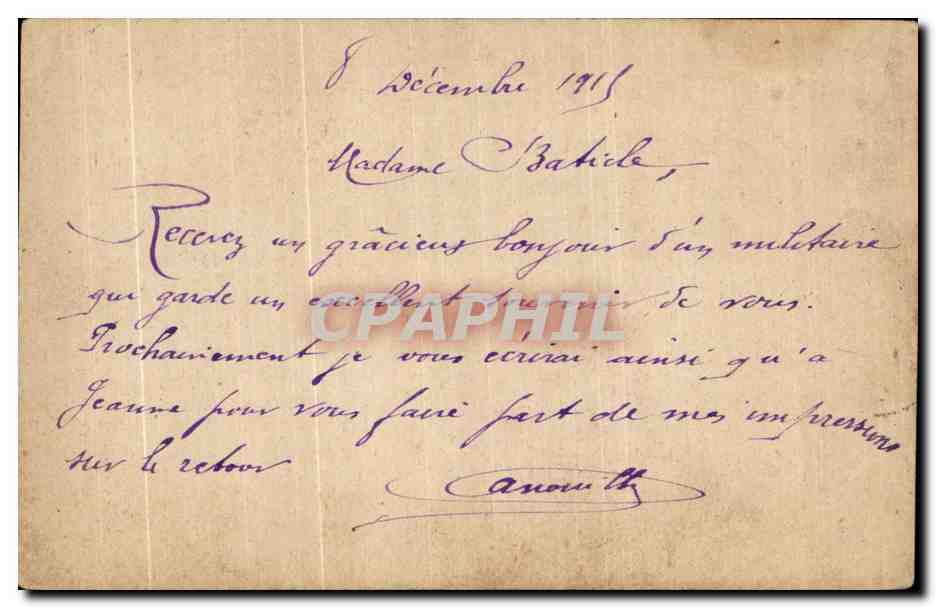 8 Décembre 1915
Madame Baticle,
Recevez un grâcieux bonjour d'un militaire
qui garde un excellent souvenir de vous.
CPAPHIL
Prochainement je vous écrirai ainsi qu'a
Jeanne pour vous faire part de mes impressions
sur le retour